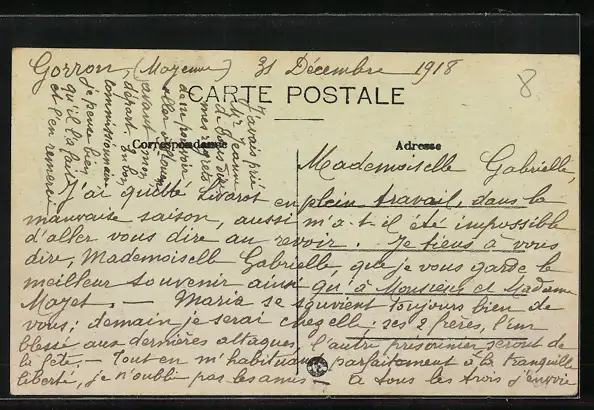 Gorron (Mayenne) 31 Décembre 1918
8
CARTE POSTALE
Correspondance
Adresse
Mademoiselle Gabrielle,
J'ai quitté Livarot en plein travail, dans la
mauvaise saison, aussi m'a-t-il été impossible
d'aller vous dire au revoir. Je tiens à vous
dire, Mademoiselle Gabrielle, que je vous garde le
meilleur souvenir ainsi qu'à Monsieur et Madame
Mayet. — Maria se souvient toujours bien de
vous; demain je serai chez elle; ses 2 frères, l'un
blessé aux dernières attaques, l'autre prisonnier seront de
la fête. — Tout en m'habituant parfaitement à la tranquille
liberté, je n'oublie pas les amis! à tous les trois j'envoie
J'avais prié
Mr Jeanne
de vous dire
mes regrets
de ne pouvoir
aller à
avant mon
départ. En bon
commissionnaire
je pense bien
qu'il l'a fait
et l'en remercie